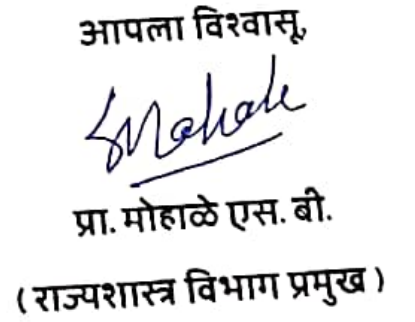 आपला विश्वासू,
SMohale
प्रा. मोहाळे एस. बी.
( राज्यशास्त्र विभाग प्रमुख )